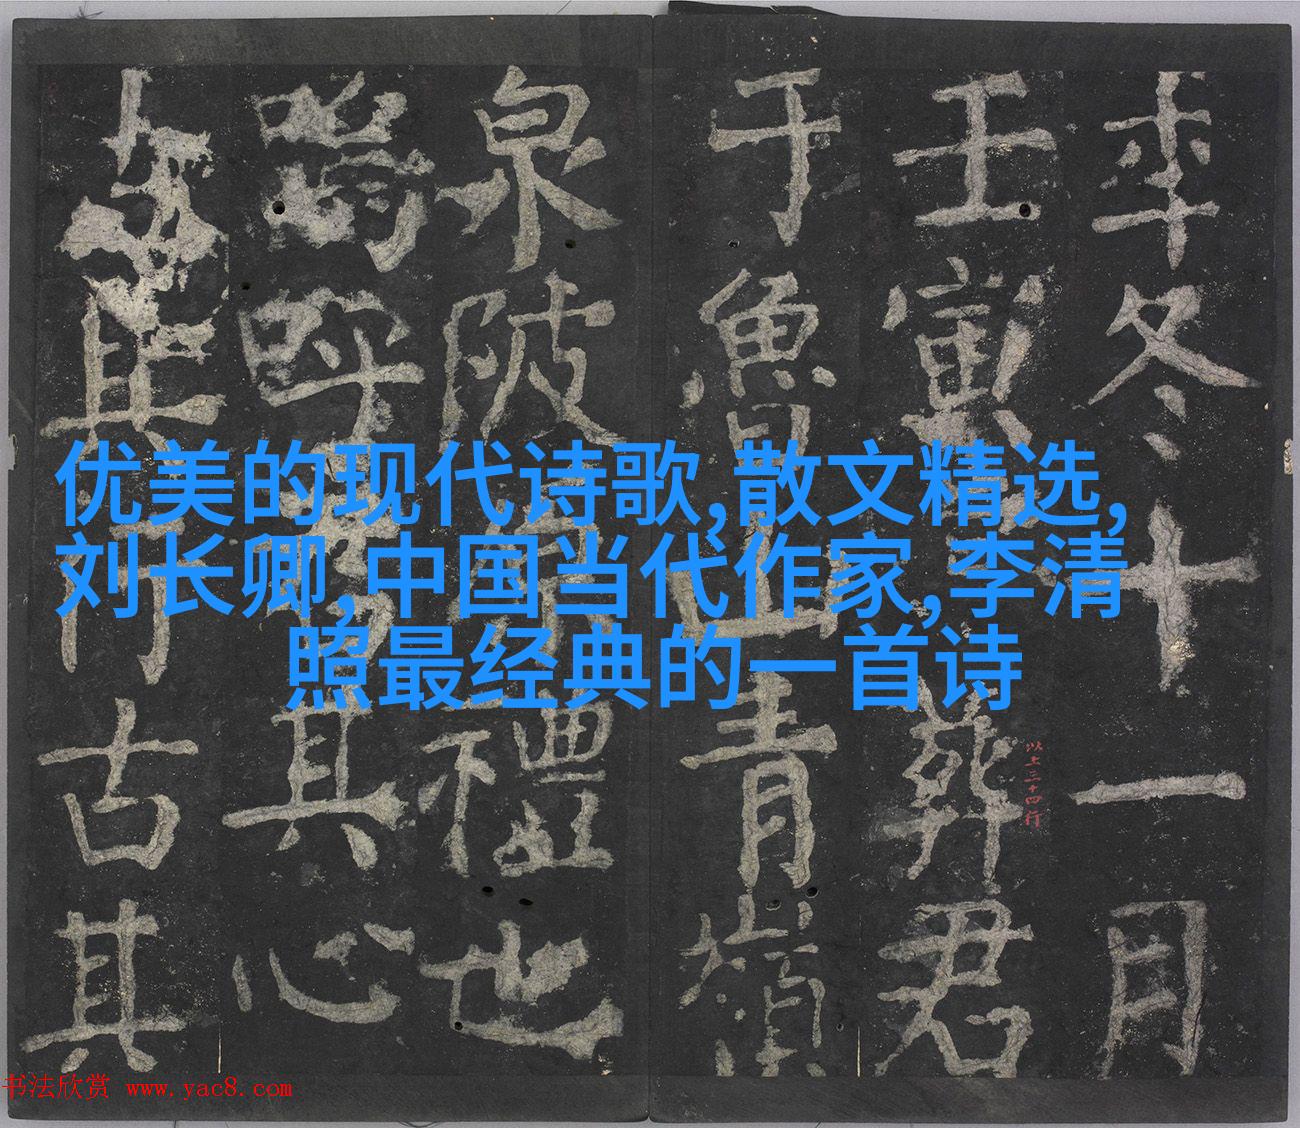 优美的现代诗歌,散文精选,
刘长卿,中国当代作家,李清
照最经典的一首诗
年冬十一月
壬寅 葬君
于魯山青嶺
泉陂 禮也
嗚呼 其心
其行古其
以上三十四行
书法欣赏 www.yac8.com